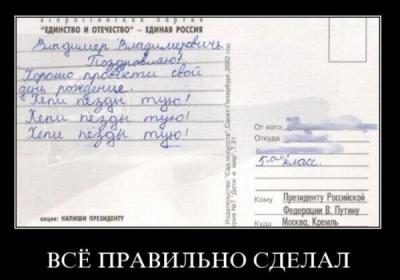 всероссийская партия
"ЕДИНСТВО И ОТЕЧЕСТВО" – ЕДИНАЯ РОССИЯ
Владимер Владимеровичь
Поздровляю!
Хорошо провести свой
день рождение.
Хепи пёзды тую!
Хепи пёзды тую!
Хепи пёзды тую!
акция: НАПИШИ ПРЕЗИДЕНТУ
От кого
Откуда
5 "а" класс.
Кому Президенту Российской
Федерации В. Путину
Куда Москва, Кремль
ВСЁ ПРАВИЛЬНО СДЕЛАЛ